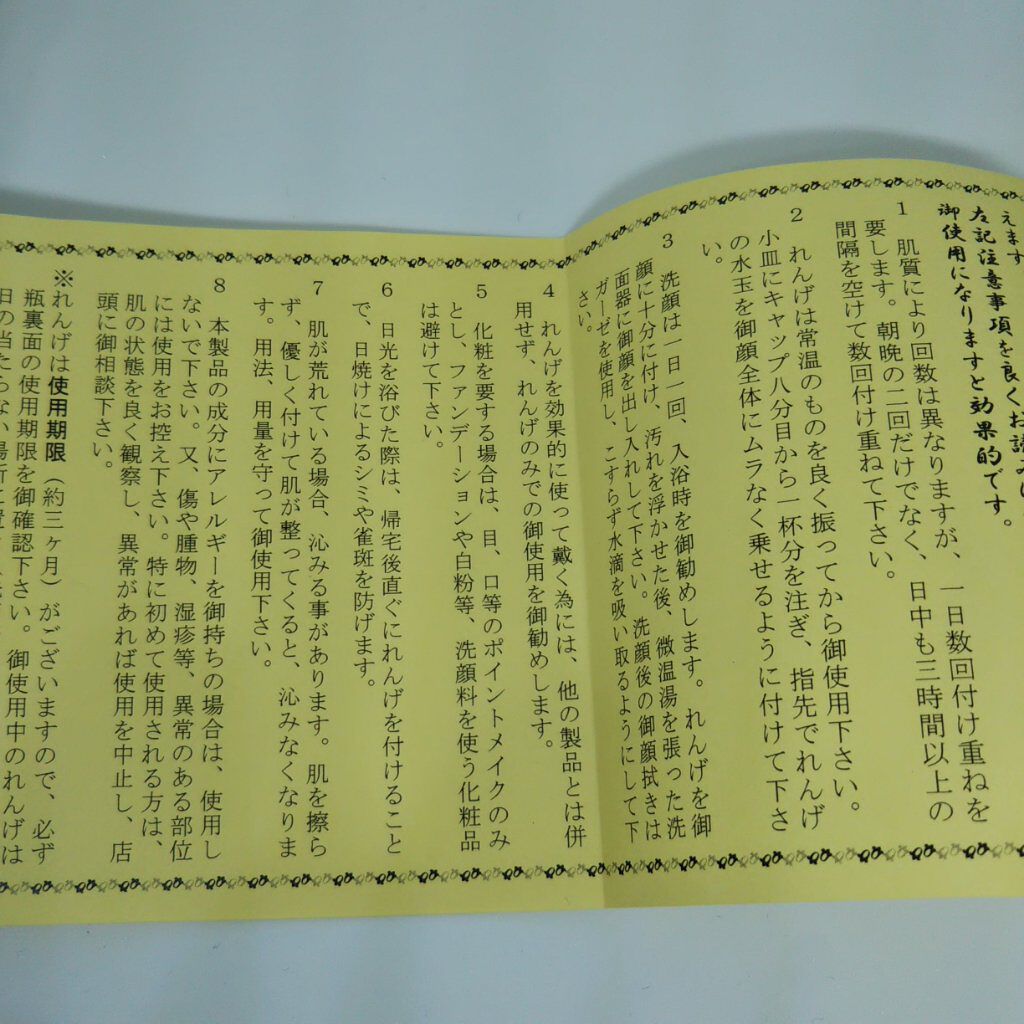 えます
左記注意事項を良くお読みし
御使用になりますと効果的です。
1 肌質により回数は異なりますが、一日数回付け重ねを
要します。朝晩の二回だけでなく、日中も三時間以上の
間隔を空けて数回付け重ねて下さい。
2 れんげは常温のものを良く振ってから御使用下さい。
小皿にキャップ八分目から一杯分を注ぎ、指先でれんげ
の水玉を御顔全体にムラなく乗せるように付けて下さ
い。
3 洗顔は一日一回、入浴時を御勧めします。れんげを御
顔に十分に付け、汚れを浮かせた後、微温湯を張った洗
面器に御顔を出し入れして下さい。洗顔後の御顔拭きは
ガーゼを使用し、こすらず水滴を吸い取るようにして下
さい。
4 れんげを効果的に使って戴く為には、他の製品とは併
用せず、れんげのみでの御使用を御勧めします。
5 化粧を要する場合は、目、口等のポイントメイクのみ
とし、ファンデーションや白粉等、洗顔料を使う化粧品
は避けて下さい。
6 日光を浴びた際は、帰宅後直ぐにれんげを付けること
で、日焼けによるシミや雀斑を防げます。
7 肌が荒れている場合、沁みる事があります。肌を擦ら
ず、優しく付けて肌が整ってくると、沁みなくなりま
す。用法、用量を守って御使用下さい。
8 本製品の成分にアレルギーを御持ちの場合は、使用し
ないで下さい。又、傷や腫物、湿疹等、異常のある部位
には使用をお控え下さい。特に初めて使用される方は、
肌の状態を良く観察し、異常があれば使用を中止し、店
頭に御相談下さい。
※れんげは使用期限（約三ヶ月）がございますので、必ず
瓶裏面の使用期限を御確認下さい。御使用中のれんげは
日の当たらない場所に置